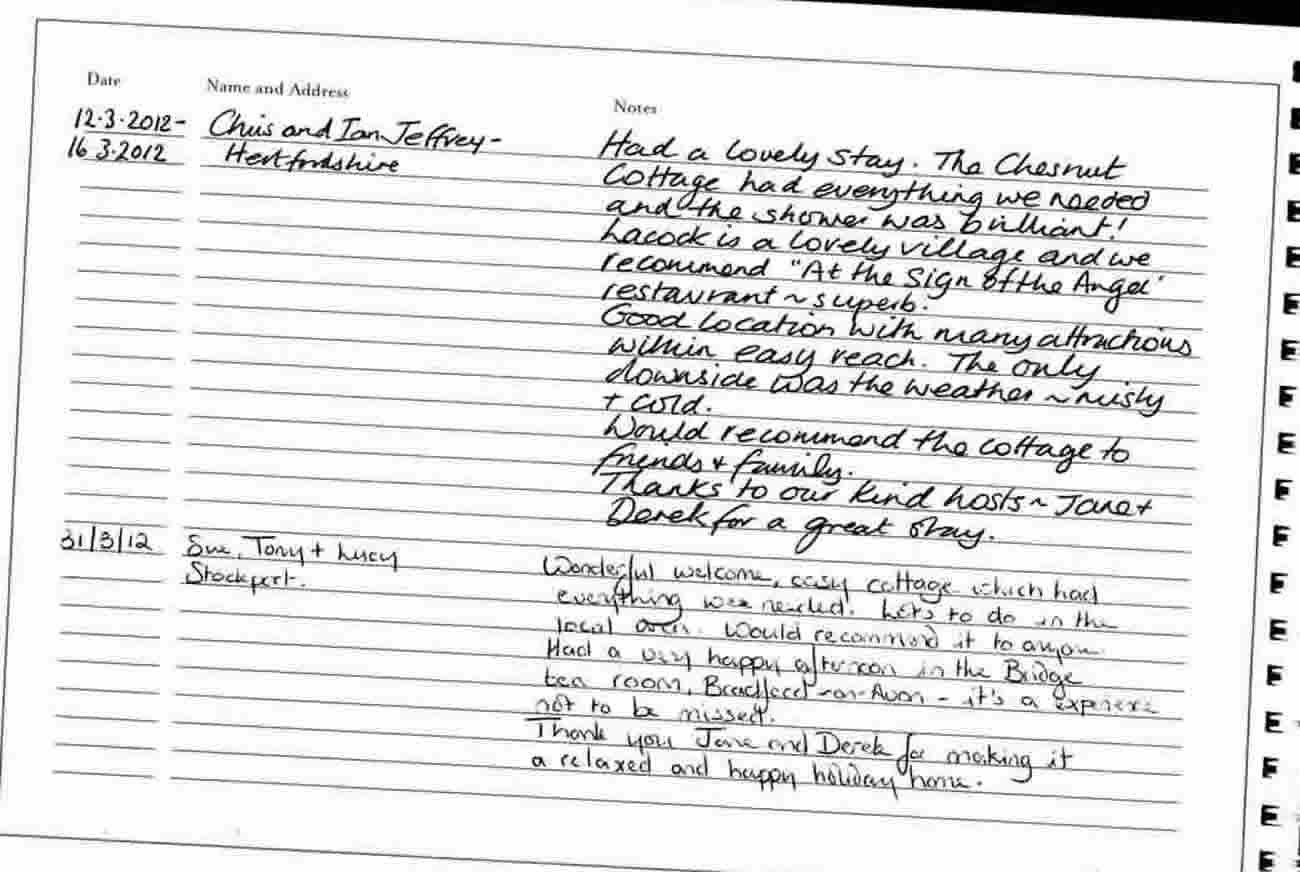 Date Name and Address Notes
12.3.2012- Chris and Ian Jeffrey-
16 3.2012 Hertfordshire
Had a lovely stay. The Chesnut
Cottage had everything we needed
and the shower was brilliant!
Lacock is a lovely village and we
recommend "At the Sign of the Angel"
restaurant ~ superb.
Good location with many attractions
within easy reach. The only
downside was the weather ~ misty
+ cold.
Would recommend the cottage to
friends + family.
Thanks to our kind hosts ~ Jane +
Derek for a great stay.
31/3/12 Sue, Tony + Lucy
Stockport.
Wonderful welcome, cosy cottage which had
everything we needed. Lots to do in the
local area. Would recommend it to anyone
Had a very happy afternoon in the Bridge
tea room, Bradford-on-Avon - it's a experience
not to be missed.
Thank you Jane and Derek for making it
a relaxed and happy holiday home.